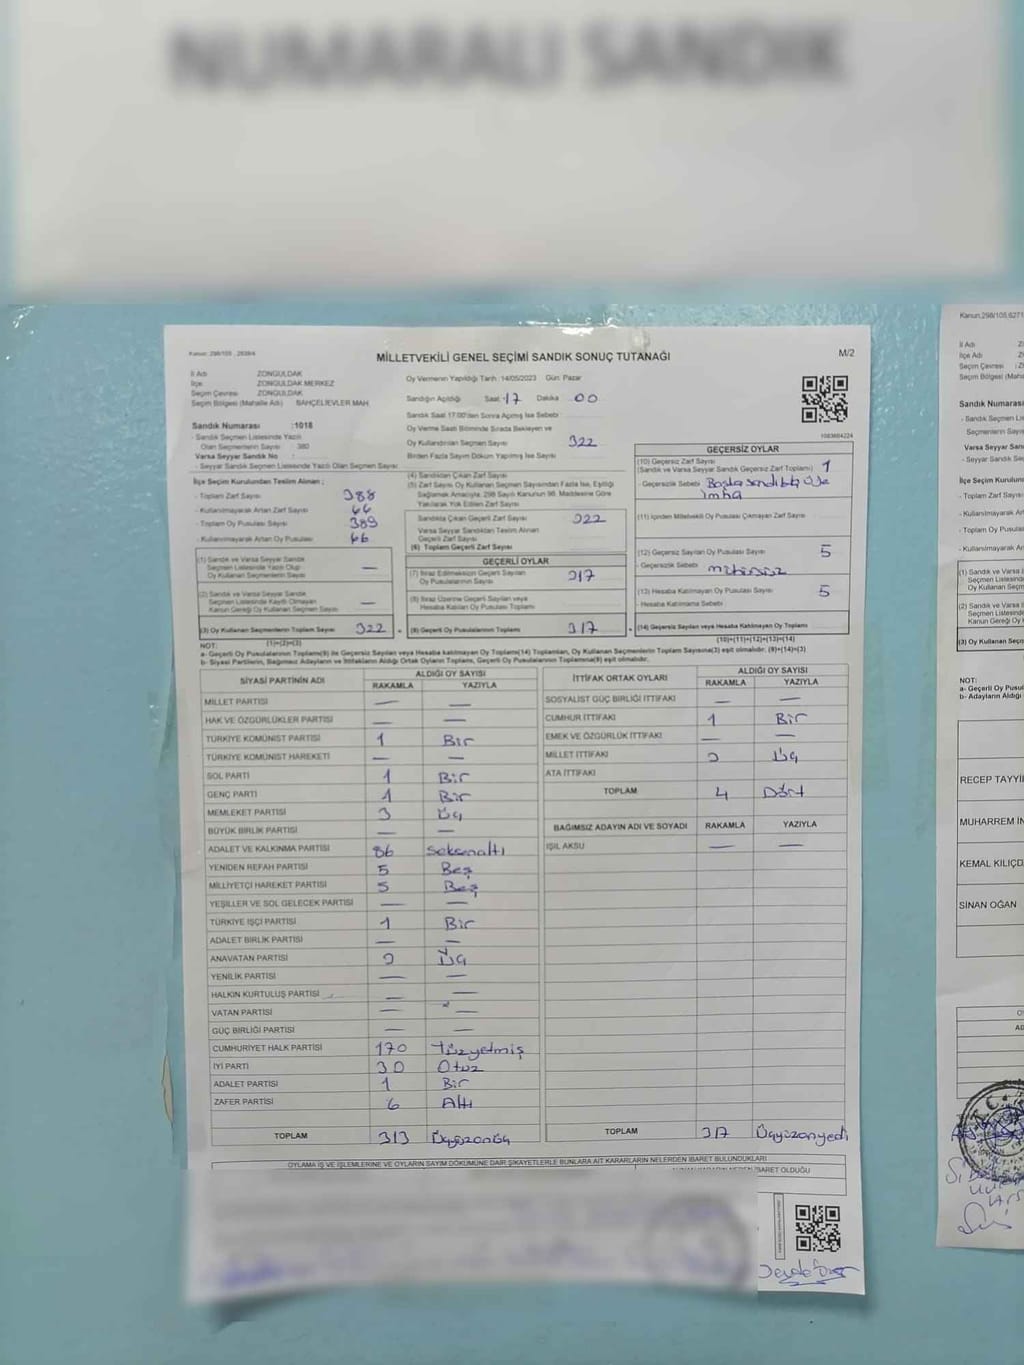 NUMARALI SANDIK
Kanun: 298/105 , 2839/4
MİLLETVEKİLİ GENEL SEÇİMİ SANDIK SONUÇ TUTANAĞI
M/2
İl Adı ZONGULDAK
İlçe ZONGULDAK MERKEZ
Seçim Çevresi ZONGULDAK
Seçim Bölgesi (Mahalle Adı) BAHÇELİEVLER MAH.
Sandık Numarası :1018
- Sandık Seçmen Listesinde Yazılı
Olan Seçmenlerin Sayısı : 380
Varsa Seyyar Sandık No :
- Seyyar Sandık Seçmen Listesinde Yazılı Olan Seçmen Sayısı
İlçe Seçim Kurulundan Teslim Alınan ;
- Toplam Zarf Sayısı 388
- Kullanılmayarak Artan Zarf Sayısı 66
- Toplam Oy Pusulası Sayısı 389
- Kullanılmayarak Artan Oy Pusulası 66
(1) Sandık ve Varsa Seyyar Sandık
Seçmen Listesinde Yazılı Olup
Oy Kullanan Seçmenlerin Sayısı —
(2) Sandık ve Varsa Seyyar Sandık
Seçmen Listesinde Kayıtlı Olmayan
Kanun Gereği Oy Kullanan Seçmen Sayısı —
(3) Oy Kullanan Seçmenlerin Toplam Sayısı 322
(1)+(2)=(3)
Oy Vermenin Yapıldığı Tarih :14/05/2023 Gün: Pazar
Sandığın Açıldığı Saat :17 Dakika 00
Sandık Saat 17:00'den Sonra Açılmış İse Sebebi
Oy Verme Saati Bitiminde Sırada Bekleyen ve
Oy Kullandırılan Seçmen Sayısı 322
Birden Fazla Sayım Döküm Yapılmış İse Sayısı
(4) Sandıktan Çıkan Zarf Sayısı
(5) Zarf Sayısı Oy Kullanan Seçmen Sayısından Fazla İse, Eşitliği
Sağlamak Amacıyla, 298 Sayılı Kanunun 98. Maddesine Göre
Yakılarak Yok Edilen Zarf Sayısı
Sandıkta Çıkan Geçerli Zarf Sayısı 322
Varsa Seyyar Sandıktan Teslim Alınan
Geçerli Zarf Sayısı
(6) Toplam Geçerli Zarf Sayısı
GEÇERLİ OYLAR
(7) İtiraz Edilmeksizin Geçerli Sayılan
Oy Pusulalarının Sayısı 317
(8) İtiraz Üzerine Geçerli Sayılan veya
Hesaba Katılan Oy Pusulaları Toplamı
(9) Geçerli Oy Pusulalarının Toplamı 317
1083664224
GEÇERSİZ OYLAR
(10) Geçersiz Zarf Sayısı
(Sandık ve Varsa Seyyar Sandık Geçersiz Zarf Toplamı) 1
- Geçersizlik Sebebi Başka
imha
(11) İçinden Milletvekili Oy Pusulası Çıkmayan Zarf Sayısı
(12) Geçersiz Sayılan Oy Pusulası Sayısı 5
- Geçersizlik Sebebi mühürsüz
(13) Hesaba Katılmayan Oy Pusulası Sayısı 5
- Hesaba Katılmama Sebebi
(14) Geçersiz Sayılan veya Hesaba Katılmayan Oy Toplamı
(10)+(11)+(12)+(13)=(14)
NOT:
a- Geçerli Oy Pusulalarının Toplamı(9) ile Geçersiz Sayılan veya Hesaba katılmayan Oy Toplamı(14) Toplamları, Oy Kullanan Seçmenlerin Toplam Sayısına(3) eşit olmalıdır. (9)+(14)=(3)
b- Siyasi Partilerin, Bağımsız Adayların ve İttifakların Aldığı Ortak Oyların Toplamı, Geçerli Oy Pusulalarının Toplamına(9) eşit olmalıdır.
SİYASİ PARTİNİN ADI ALDIĞI OY SAYISI
RAKAMLA YAZIYLA
MİLLET PARTİSİ — —
HAK VE ÖZGÜRLÜKLER PARTİSİ — —
TÜRKİYE KOMÜNİST PARTİSİ 1 Bir
TÜRKİYE KOMÜNİST HAREKETİ — —
SOL PARTİ 1 Bir
GENÇ PARTİ 1 Bir
MEMLEKET PARTİSİ 3 Üç
BÜYÜK BİRLİK PARTİSİ — —
ADALET VE KALKINMA PARTİSİ 86 Seksenaltı
YENİDEN REFAH PARTİSİ 5 Beş
MİLLİYETÇİ HAREKET PARTİSİ 5 Beş
YEŞİLLER VE SOL GELECEK PARTİSİ — —
TÜRKİYE İŞÇİ PARTİSİ 1 Bir
ADALET BİRLİK PARTİSİ — —
ANAVATAN PARTİSİ 3 Üç
YENİLİK PARTİSİ — —
HALKIN KURTULUŞ PARTİSİ — —
VATAN PARTİSİ — —
GÜÇ BİRLİĞİ PARTİSİ — —
CUMHURİYET HALK PARTİSİ 170 Yüzyetmiş
İYİ PARTİ 30 Otuz
ADALET PARTİSİ 1 Bir
ZAFER PARTİSİ 6 Altı
TOPLAM 313 Üçyüzonüç
İTTİFAK ORTAK OYLARI ALDIĞI OY SAYISI
RAKAMLA YAZIYLA
SOSYALİST GÜÇ BİRLİĞİ İTTİFAKI — —
CUMHUR İTTİFAKI 1 Bir
EMEK VE ÖZGÜRLÜK İTTİFAKI — —
MİLLET İTTİFAKI 3 Üç
ATA İTTİFAKI
TOPLAM 4 Dört
BAĞIMSIZ ADAYIN ADI VE SOYADI RAKAMLA YAZIYLA
IŞIL AKSU — —
TOPLAM 317 Üçyüzonyedi
OYLAMA İŞ VE İŞLEMLERİNE VE OYLARIN SAYIM DÖKÜMÜNE DAİR ŞİKAYETLERLE BUNLARA AİT KARARLARIN NELERDEN İBARET BULUNDUKLARI
İBARET OLDUĞU
Kanun:298/105,6271
İl Adı
İlçe Adı
Seçim Çevresi
Seçim Bölgesi (Mah
Sandık Numarası
- Sandık Seçmen Lis
Seçmenlerin Sayısı
Varsa Seyyar Sandı
- Seyyar Sandık Seçm
İlçe Seçim Kurulun
- Toplam Zarf Sayısı
- Kullanılmayarak Ar
- Toplam Oy Pusulas
- Kullanılmayarak Art
(1) Sandık ve Varsa
Seçmen Listesin
Oy Kullanan Seç
(2) Sandık ve Varsa
Seçmen Listesin
Kanun Gereği Oy
(3) Oy Kullanan Seçm
NOT:
a- Geçerli Oy Pusul
b- Adayların Aldığı
RECEP TAYYİ
MUHARREM İN
KEMAL KILIÇD
SİNAN OĞAN